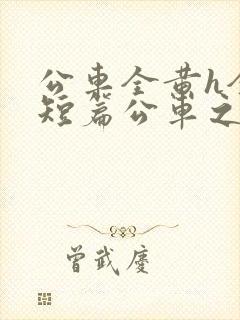 公東全黄h全
短篇公車之
曾武慶